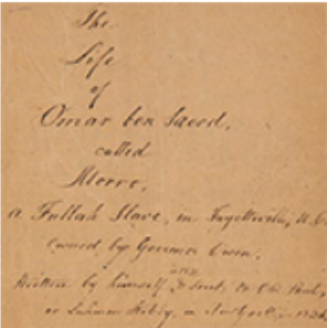 The
Life
of
Omar ben Saeed,
called
Morro,
a Fullah Slave, in Fayetteville, N.C.
Owned by Governor Owen,
Written by himself in 1831 & sent to Old Paul,
or Lahmen Kebby, in New York, in 1836,